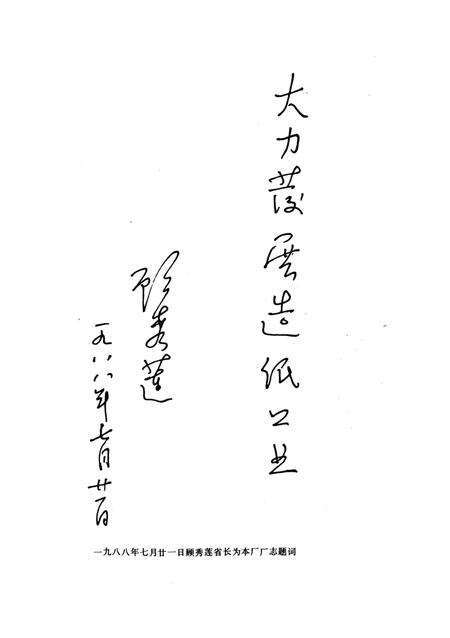 大力发展造纸工业
顾秀莲
一九八八年七月廿一日
一九八八年七月廿一日顾秀莲省长为本厂厂志题词